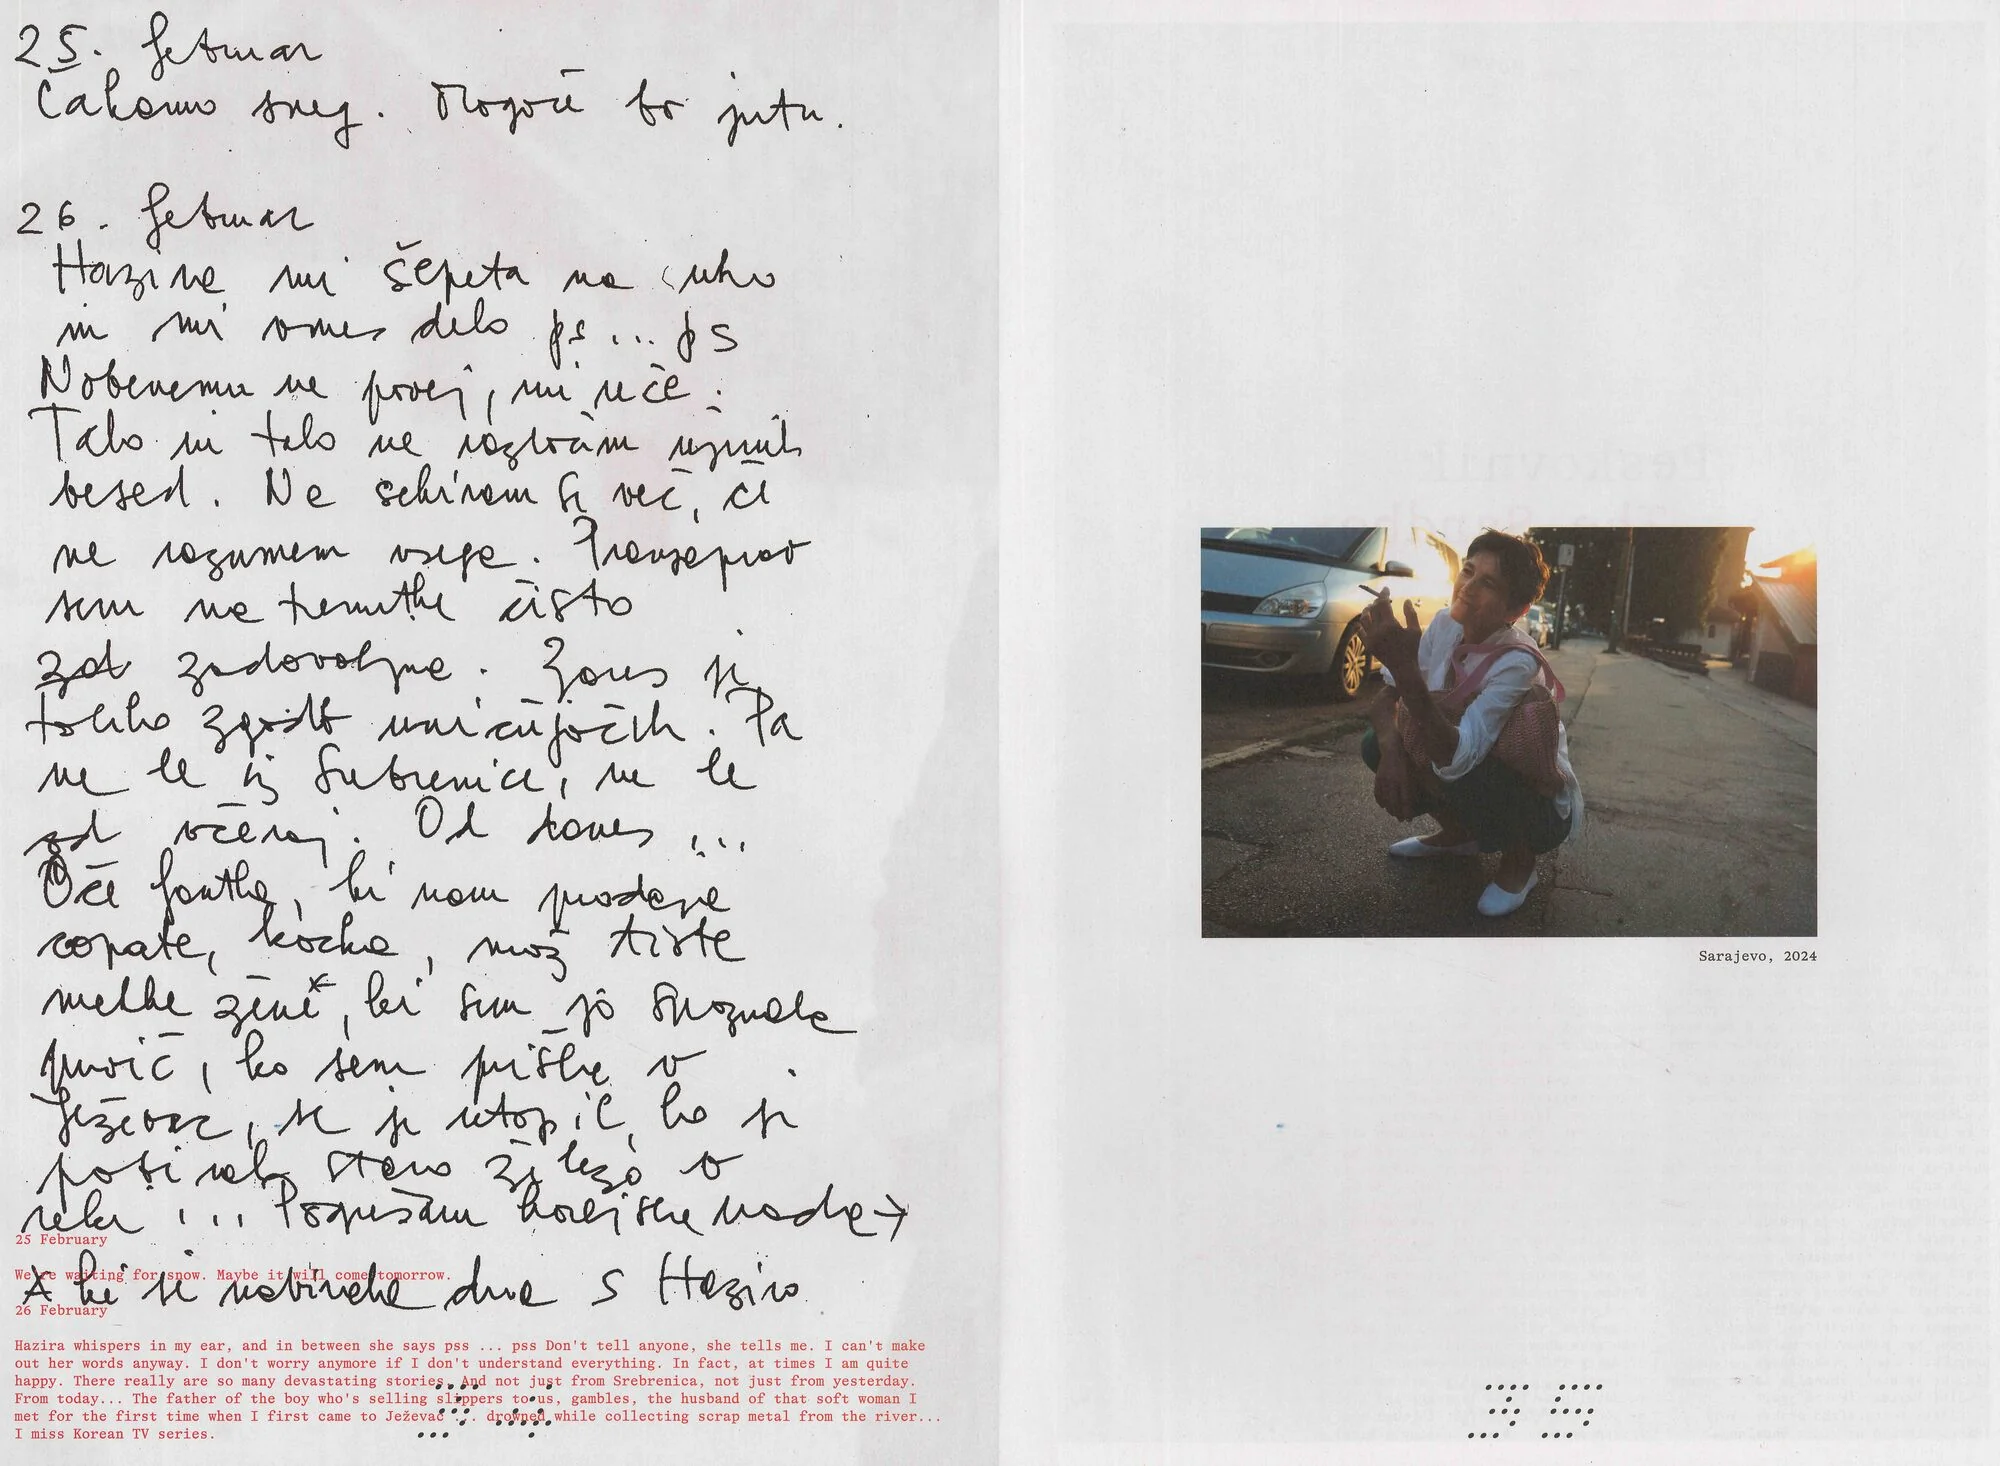 25. februar
Čakamo sneg. Mogoče bo jutri.
26. februar
Hazira mi šepeta na uho
in mi vmes dela ps... ps
Nobenemu ne povej, mi reče.
Tako in tako ne razločim njenih
besed. Ne sekiram se več, če
ne razumem vsega. Pravzaprav
sem na trenutke čisto
zadovoljna. Zares je
toliko zgodb uničujočih. Pa
ne le iz Srebrenice, ne le
od včeraj. Od danes ...
Oče fantka, ki nam prodaja
copate, kocka, mož tiste
mehke žene, ki sem jo spoznala
prvič, ko sem prišla v
Ježevac, se je utopil, ko je
pobiral staro železo v
reki ... Pogrešam korejske nada→
A ki si nabirala drva s Haziro
25 February
We're waiting for snow. Maybe it will come tomorrow.
26 February
Hazira whispers in my ear, and in between she says pss ... pss Don't tell anyone, she tells me. I can't make
out her words anyway. I don't worry anymore if I don't understand everything. In fact, at times I am quite
happy. There really are so many devastating stories. And not just from Srebrenica, not just from yesterday.
From today... The father of the boy who's selling slippers to us, gambles, the husband of that soft woman I
met for the first time when I first came to Ježevac ... drowned while collecting scrap metal from the river...
I miss Korean TV series.
Sarajevo, 2024
35